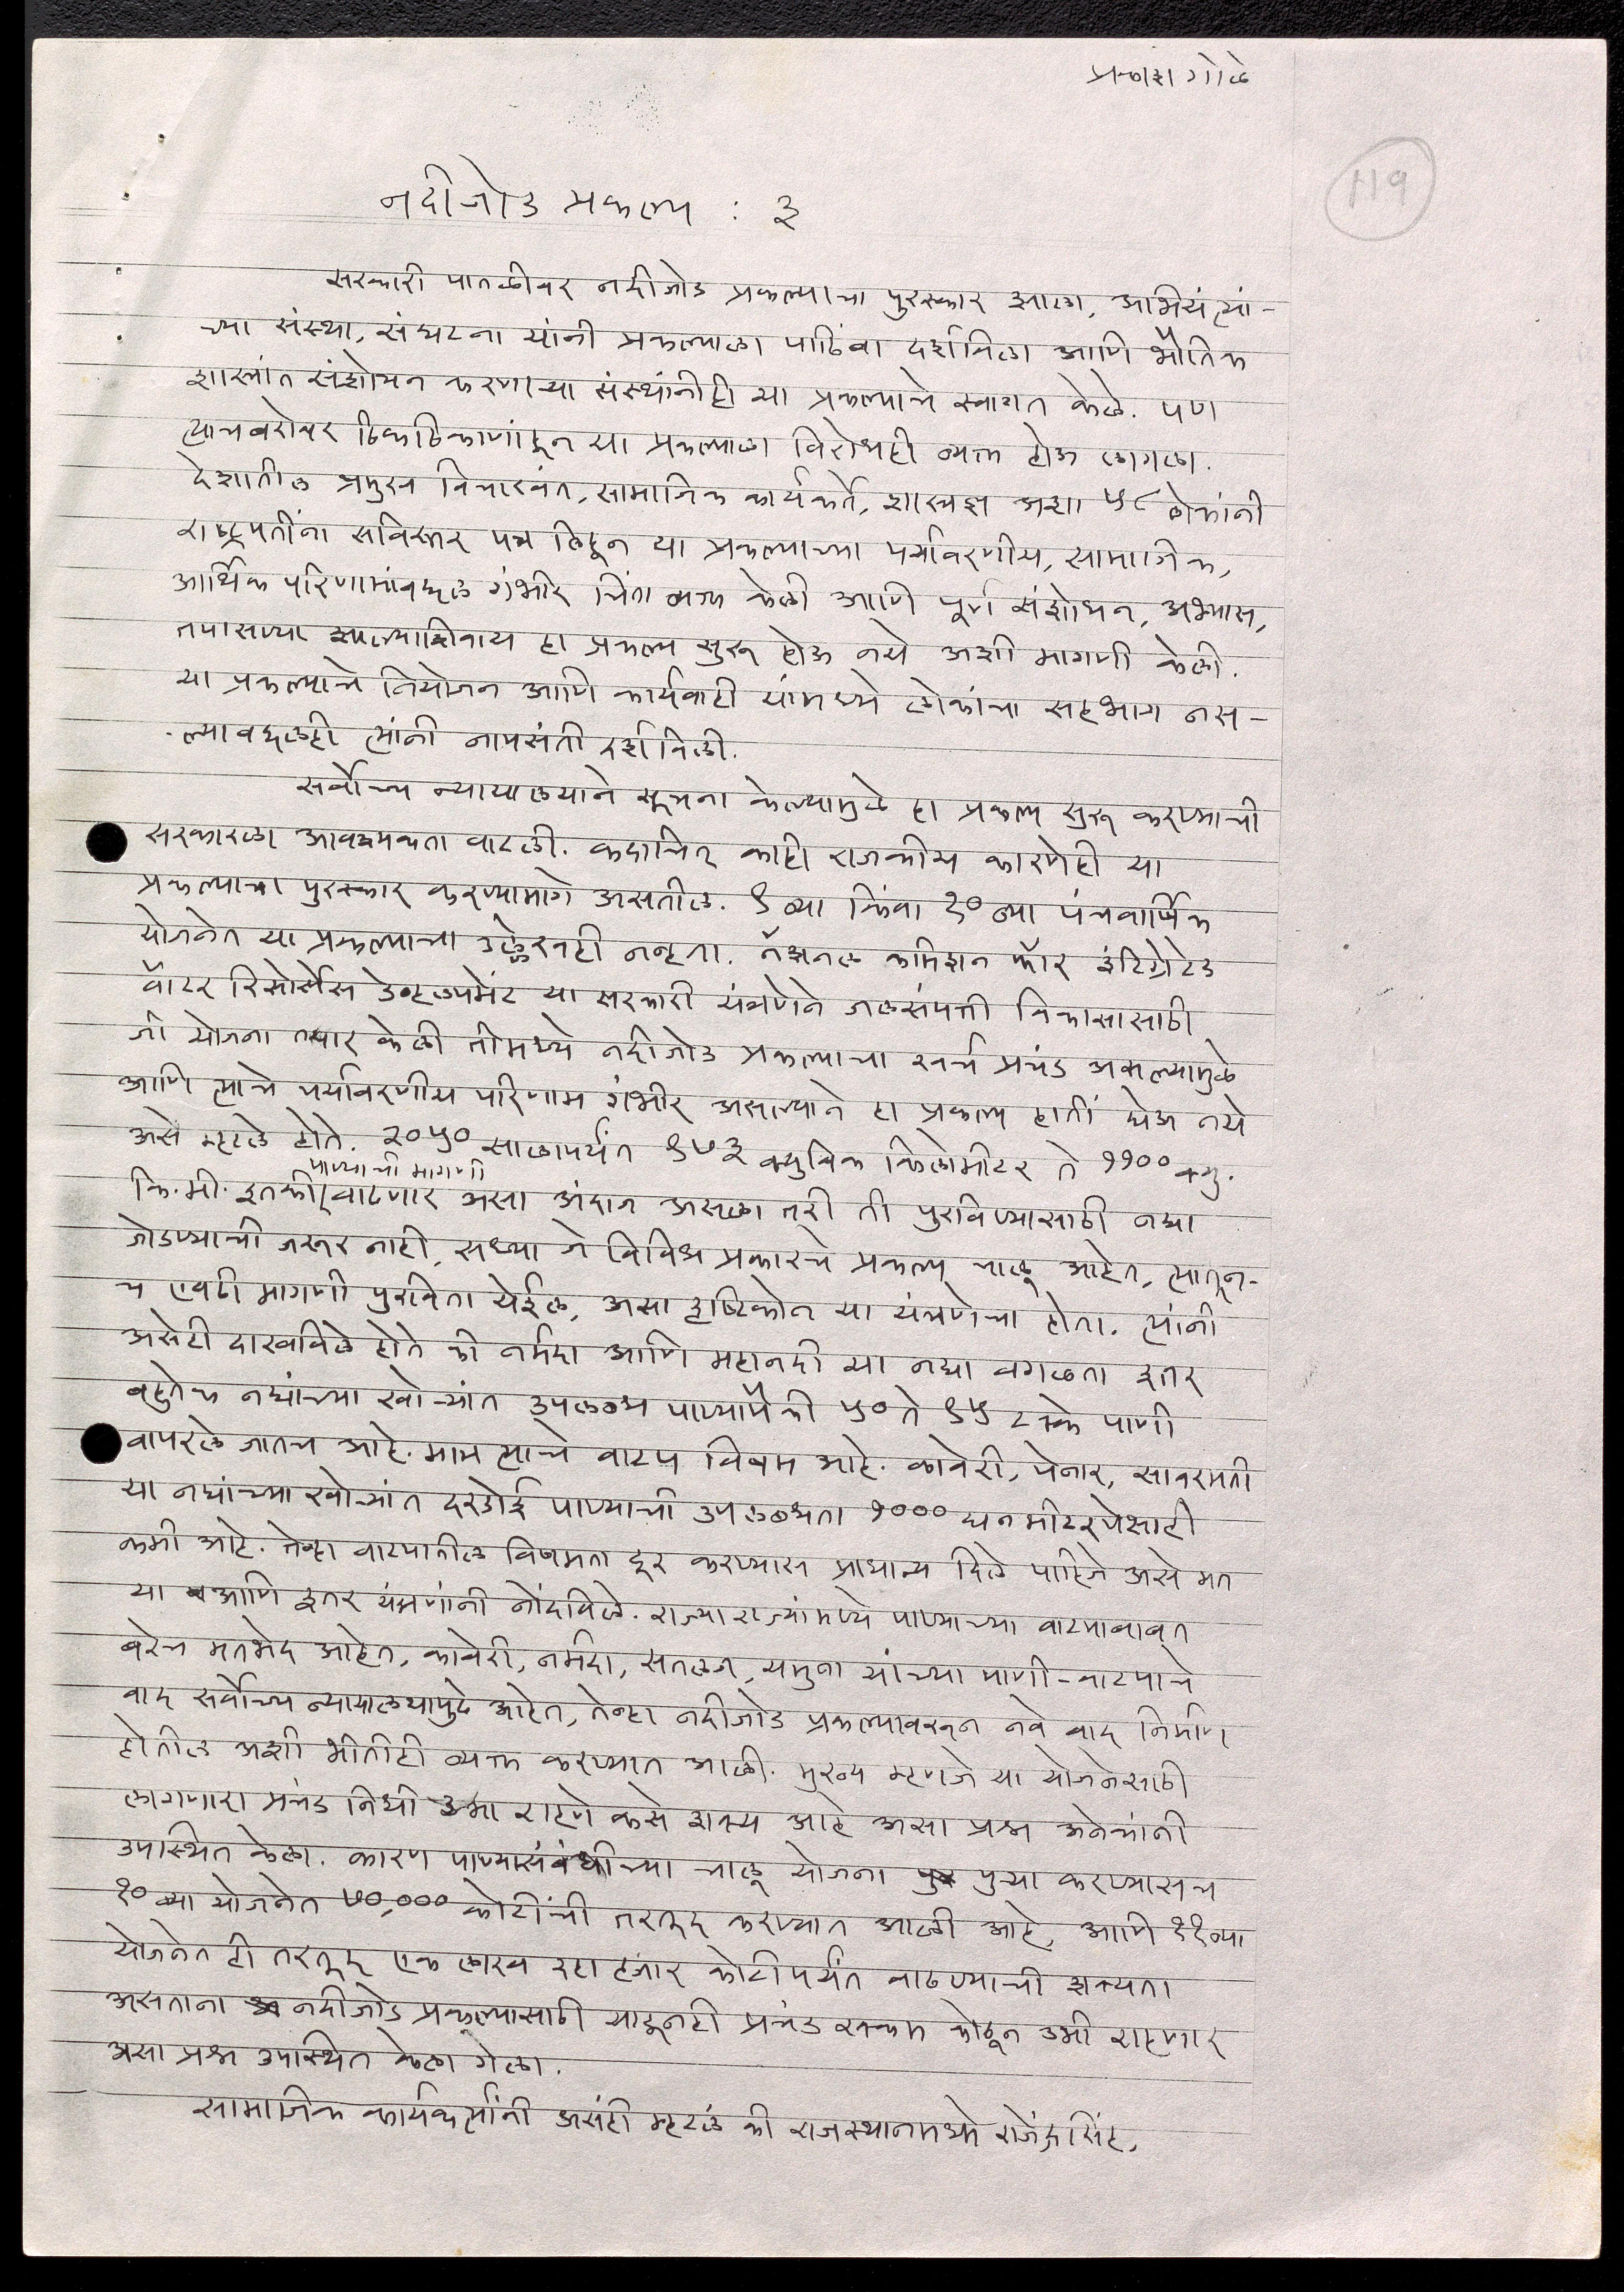 प्रकाश गोळे
119
नदीजोड प्रकल्प : ३
सरकारी पातळीवर नदीजोड प्रकल्पाचा पुरस्कार झाला, अभियंत्यां-
च्या संस्था, संघटना यांनी प्रकल्पाला पाठिंबा दर्शविला आणि भौतिक
शास्त्रांत संशोधन करणाऱ्या संस्थांनीही या प्रकल्पाचे स्वागत केले. पण
त्याचबरोबर ठिकठिकाणांहून या प्रकल्पाला विरोधही व्यक्त होऊ लागला.
देशातील प्रमुख विचारवंत, सामाजिक कार्यकर्ते, शास्त्रज्ञ अशा ५८ लोकांनी
राष्ट्रपतींना सविस्तर पत्र लिहून या प्रकल्पाच्या पर्यावरणीय, सामाजिक,
आर्थिक परिणामांबद्दल गंभीर चिंता व्यक्त केली आणि पूर्ण संशोधन, अभ्यास,
तपासण्या झाल्याशिवाय हा प्रकल्प सुरू होऊ नये अशी मागणी केली.
या प्रकल्पाचे नियोजन आणि कार्यवाही यांमध्ये लोकांचा सहभाग नस-
ल्याबद्दलही त्यांनी नापसंती दर्शविली.
सर्वोच्च न्यायालयाने सूचना केल्यामुळे हा प्रकल्प सुरू करण्याची
सरकारला आवश्यकता वाटली. कदाचित काही राजकीय कारणेही या
प्रकल्पाचा पुरस्कार करण्यामागे असतील. ९ व्या किंवा १० व्या पंचवार्षिक
योजनेत या प्रकल्पाचा उल्लेखही नव्हता. नॅशनल कमिशन फॉर इंटिग्रेटेड
वॉटर रिसोर्सेस डेव्हलपमेंट या सरकारी यंत्रणेने जलसंपत्ती विकासासाठी
जी योजना तयार केली तीमध्ये नदीजोड प्रकल्पाचा खर्च प्रचंड असल्यामुळे
आणि त्याचे पर्यावरणीय परिणाम गंभीर असल्याने हा प्रकल्प हातीं घेऊ नये
असे म्हटले होते. २०५० सालापर्यंत ९७३ क्युबिक किलोमीटर ते ११०० क्यु.
कि.मी. इतकी पाण्याची मागणी वाढणार असा अंदाज असला तरी ती पुरविण्यासाठी नद्या
जोडण्याची जरूर नाही, सध्या जे विविध प्रकारचे प्रकल्प चालू आहेत, त्यातून-
च एवढी मागणी पुरविता येईल, असा दृष्टिकोन या यंत्रणेचा होता. त्यांनी
असेही दाखविले होते की नर्मदा आणि महानदी या नद्या वगळता इतर
बहुतेक नद्यांच्या खोऱ्यांत उपलब्ध पाण्यापैकी ५० ते ९५ टक्के पाणी
वापरले जातच आहे. मात्र त्याचे वाटप विषम आहे. कावेरी, पेनार, साबरमती
या नद्यांच्या खोऱ्यांत दरडोई पाण्याची उपलब्धता १००० घनमीटरपेक्षाही
कमी आहे. तेव्हा वाटपातील विषमता दूर करण्यास प्राधान्य दिले पाहिजे असे मत
या आणि इतर यंत्रणांनी नोंदविले. राज्याराज्यांमध्ये पाण्याच्या वाटपाबाबत
बरेच मतभेद आहेत, कावेरी, नर्मदा, सतलज, यमुना यांच्या पाणी-वाटपाचे
वाद सर्वोच्च न्यायालयापुढे आहेत, तेव्हा नदीजोड प्रकल्पावरून नवे वाद निर्माण
होतील अशी भीतीही व्यक्त करण्यात आली. मुख्य म्हणजे या योजनेसाठी
लागणारा प्रचंड निधी उभा राहणे कसे शक्य आहे असा प्रश्न अनेकांनी
उपस्थित केला. कारण पाण्यासंबंधीच्या चालू योजना पुऱ्या करण्यासच
१० व्या योजनेत ७०,००० कोटींची तरतूद करण्यात आली आहे, आणि ११व्या
योजनेत ही तरतूद एक लाख दहा हजार कोटीपर्यंत वाढण्याची शक्यता
असताना नदीजोड प्रकल्पासाठी याहूनही प्रचंड रक्कम कोठून उभी राहणार
असा प्रश्न उपस्थित केला गेला.
सामाजिक कार्यकर्त्यांनी असंही म्हटलं की राजस्थानमध्ये राजेंद्रसिंह,